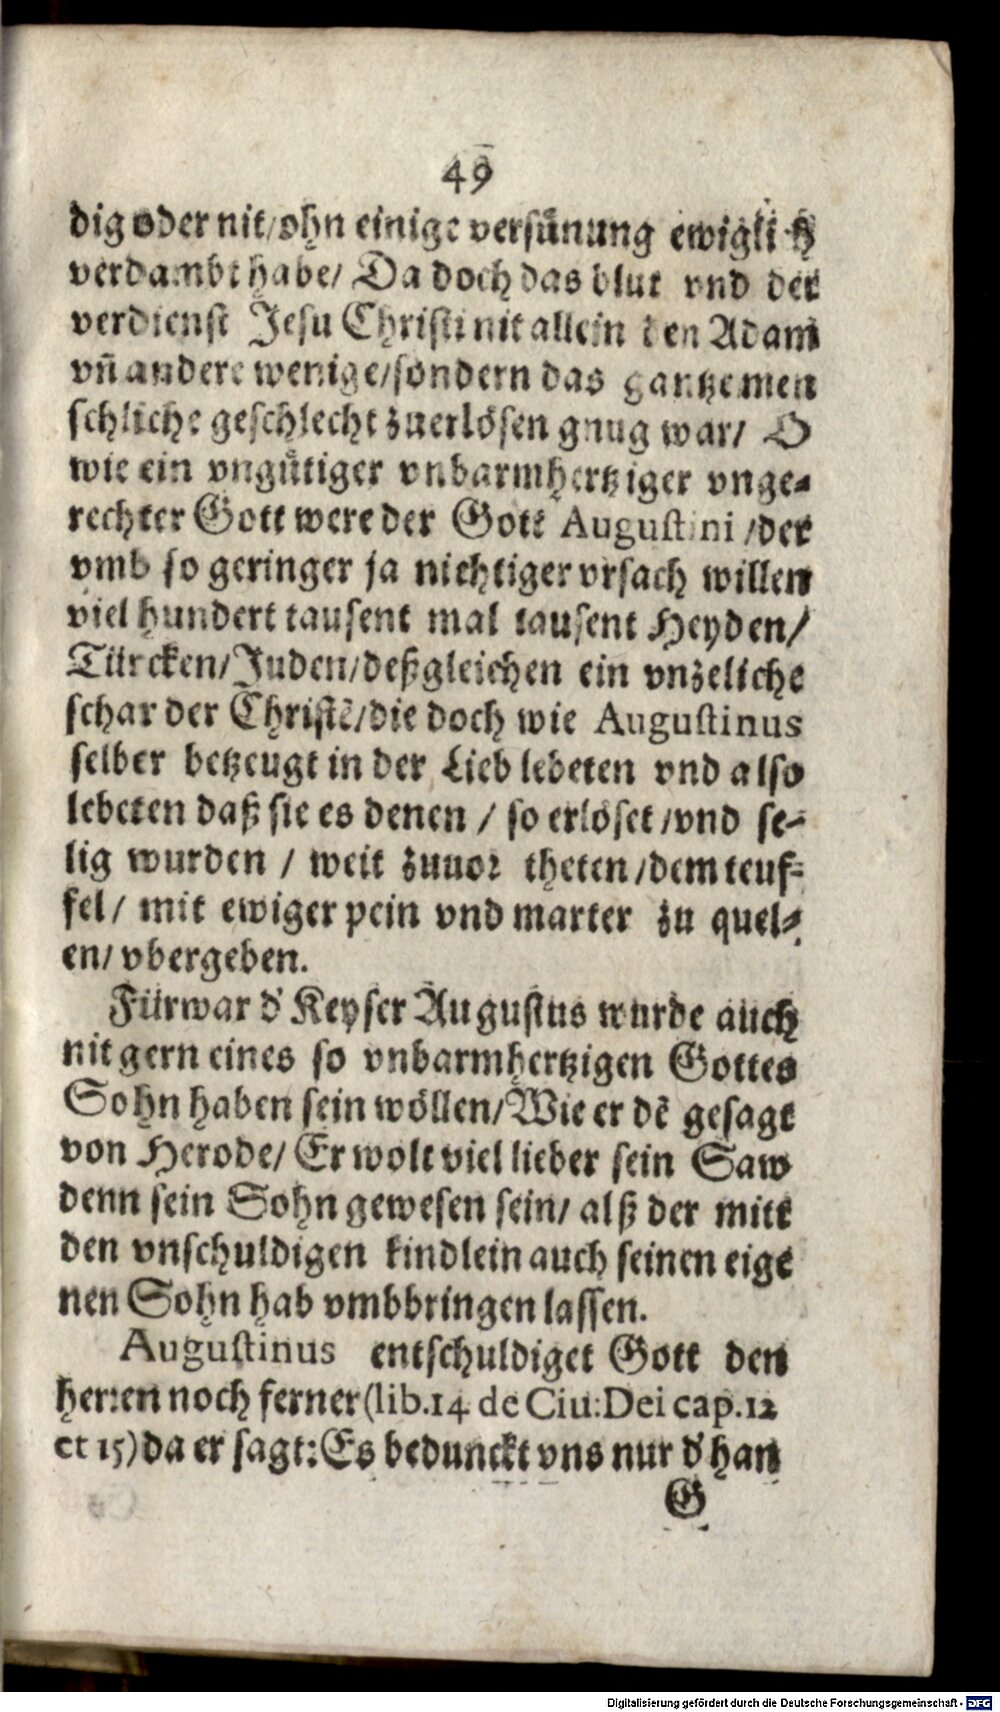 49
dig oder nit/ohn einige versünung ewiglich
verdambt habe/ Da doch das blut vnd der
verdienst Jesu Christi nit allein den Adam
vñ andere wenige/sondern das gantze men
schliche geschlecht zuerlösen gnug war/ O
wie ein vngütiger vnbarmhertziger vnge-
rechter Gott were der Gott Augustini /der
vmb so geringer ja nichtiger vrsach willen
viel hundert tausent mal tausent Heyden/
Türcken/Juden/deßgleichen ein vnzeliche
schar der Christẽ/die doch wie Augustinus
selber betzeugt in der Lieb lebeten vnd also
lebeten daß sie es denen / so erlöset /vnd se-
lig wurden / weit zuuor theten /dem teuf-
fel/ mit ewiger pein vnd marter zu quel-
en/ vbergeben.
Fürwar d' Keyser Augustus wurde auch
nit gern eines so vnbarmhertzigen Gottes
Sohn haben sein wöllen/Wie er dẽ gesagt
von Herode/ Er wolt viel lieber sein Saw
denn sein Sohn gewesen sein/ alß der mitt
den vnschuldigen kindlein auch seinen eige
nen Sohn hab vmbbringen lassen.
Augustinus entschuldiget Gott den
herren noch ferner (lib.14 de Ciu:Dei cap.12
et 15) da er sagt: Es bedunckt vns nur d' han
G
Digitalisierung gefördert durch die Deutsche Forschungsgemeinschaft - DFG